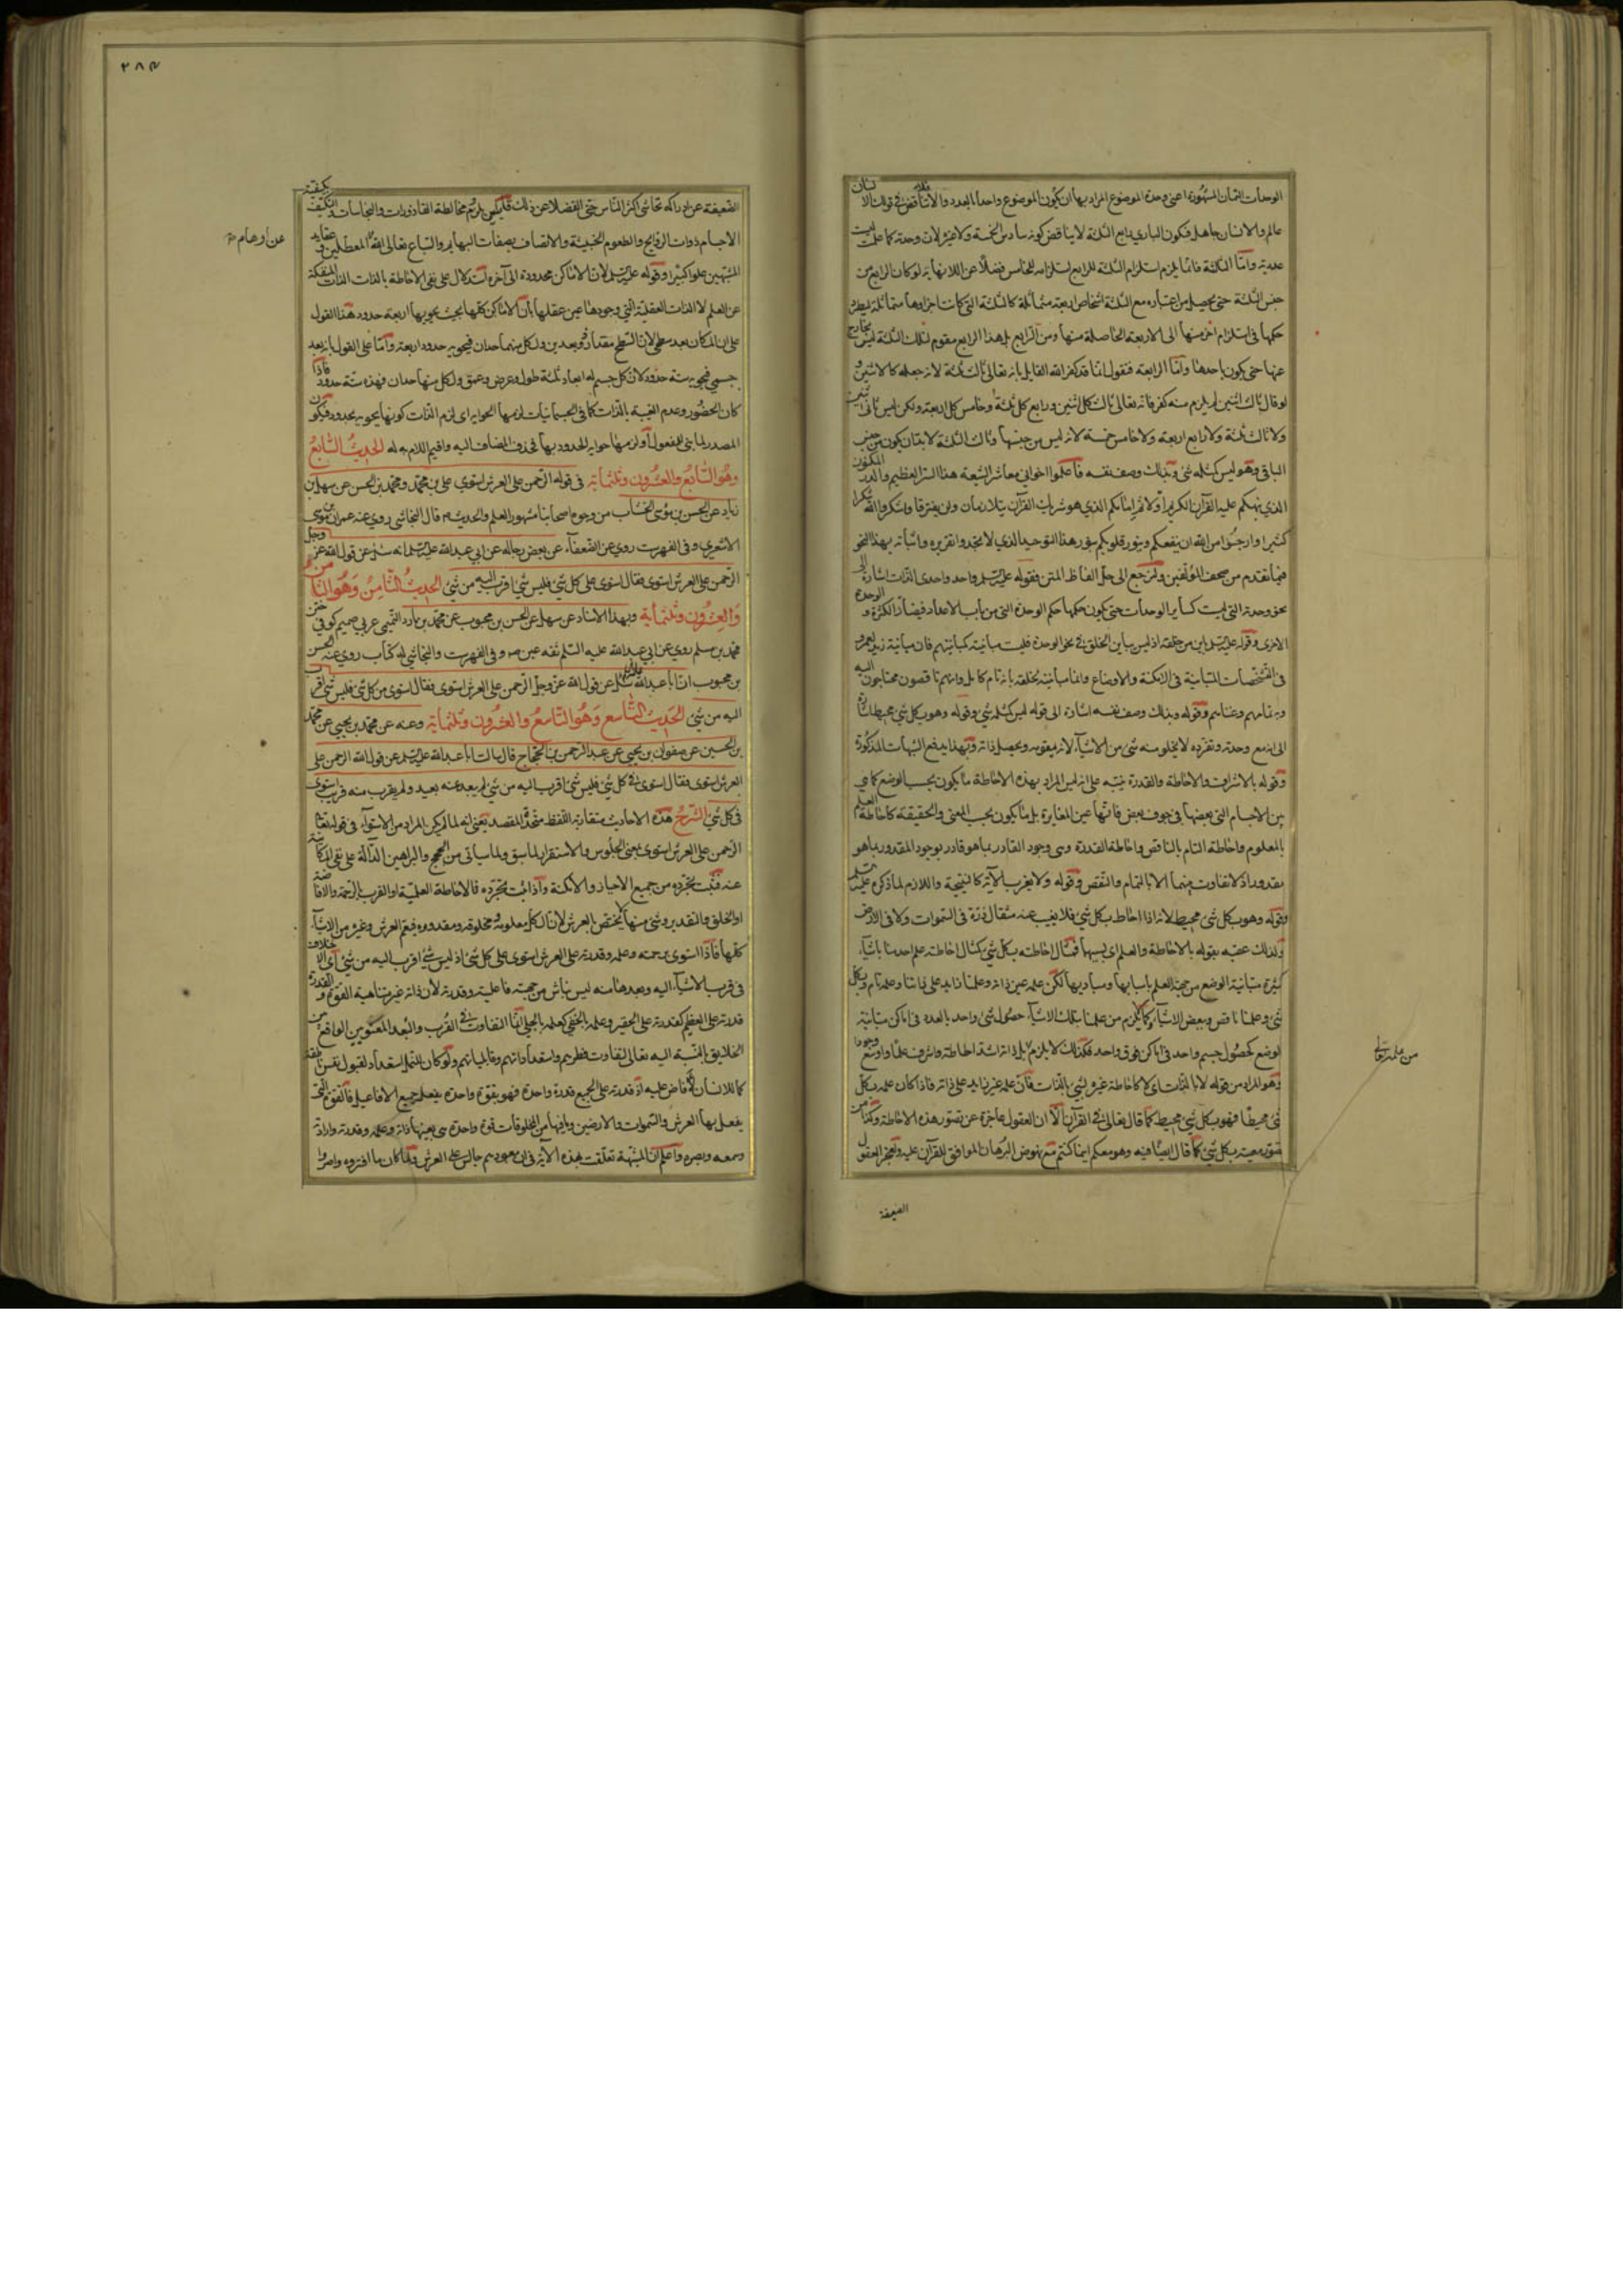 الوحدات الثمان المشهورة اعنى وحدة الموضوع المراد بها ان يكون الموضوع واحدا بالعدد والا فلا تناقض فى قولنا الانسان
عالم والانسان جاهل فكون البارى رابع الثلثة لا يناقض كونه سادس الخمسة ولا غيره لان وحدته كما علمت ليست
عددية واما الثلثة فانما يلزم استلزام الثلثة للرابع استلزامه للخامس فضلا عن اللانهاية لو كان الرابع من
جنس الثلثة حتى يحصل من اعتباره مع الثلثة اشخاص اربعة متماثلة كالثلثة التى كانت اجزاوها متماثلة ليطرد
حكمها فى استلزام اخر منها الى الاربعة الحاصلة منها ومن الرابع بل هذا الرابع مقوم لتلك الثلثة ليس بخارج
عنها حتى يكون احدها واما الرابعة فنقول انما قد كفر الله القايل بانه تعالى ثالث ثلثة لانه جعله كالاثنين و
لو قال ثالث اثنين لم يلزم منه كفر فانه تعالى ثالث كل اثنين ورابع كل ثلثة وخامس كل اربعة ولكن ليس ثانى اثنين
ولا ثالث ثلثة ولا رابع اربعة ولا خامس خمسة لانه ليس من جنسها وثالث الثلثة لا بد ان يكون من جنس
الباقى وهو ليس كمثله شئ وبذلك وصف نفسه فاعلموا اخوانى معاشر الشيعة هذا السر العظيم والدر المكنون
الذى نبهكم عليه القرآن الكريم اولا ثم امامكم الذى هو شريك القرآن يتلازمان ولن يفترقا واشكروا الله شكرا
كثيرا وارجوا من الله ان ينفعكم وينور قلوبكم بنور هذا التوحيد الذى لا تجدوا تقريره واثباته بهذا النحو
فيما تقدم من صحف المؤلفين ولنرجع الى حل الفاظ المتن فقوله عليه السلم واحد واحدى الذات اشارة الى
نحو وحدته التى ليست كساير الوحدات حتى يكون حكمها حكم الوحدة التى من باب الاعداد فيضاد الكثرة و الوحدة
الاخرى وقوله عليه السلم باين من خلقه اذ ليس يباين الخلق فى نحو الوحدة فليست مباينته كمباينتهم فان مباينة زيد لعمرو
فى التشخصات المتباينة فى الامكنة والاوضاع وانما مباينته لخلقه بانه تام كامل وانهم ناقصون محتاجون اليه
وبه تمامهم وغناهم وقوله وبذلك وصف نفسه اشارة الى قوله ليس كمثله شئ وقوله وهو بكل شئ محيط اشارة
الى انه مع وحدته وتفرده لا يخلو منه شئ من الاشياء لانه يقومه ويحصل ذاته وبهذا يندفع الشبهات المذكورة
وقوله بالاشراف والاحاطة والقدرة تنبيه على انه ليس المراد بهذه الاحاطة ما يكون بحسب الوضع كما هى
بين الاجسام التى بعضها فى جوف بعض فانها عين المغايرة بل ما يكون بحسب المعنى والحقيقة كاحاطة العلم
بالمعلوم واحاطة التام بالناقص واحاطة القدرة وهى وجود القادر بما هو قادر بوجود المقدور بما هو
مقدور اذ لا تفاوت بينهما الا بالتمام والنقص وقوله ولا يعزب الآية كالنتيجة واللازم لما ذكره عليه السلم
وقوله وهو بكل شئ محيط لانه اذا احاط بكل شئ فلا يغيب عنه مثقال ذرة فى السموات ولا فى الارض
ولذلك عقبه بقوله بالاحاطة والعلم اى بسببهما فمثال احاطته بكل شئ كمثال احاطة علم احدنا باشياء
كثيرة متباينة الوضع من جهة العلم باسبابها ومباديها لكن علمه عين ذاته وعلمنا زايد على ذاتنا وعلمه تام وبكل
شئ وعلمنا ناقص وببعض الاشياء وكما لا يلزم من علمنا بتلك الاشياء حصول شئ واحد بالعدد فى اماكن متباينة
الوضع كحصول جسم واحد فى اماكن فوق واحد فكذلك لا يلزم بل ذاته اشد احاطة واشرف علما واوسع وجودا
وهو المراد من قوله لا بالذات اى لا كاحاطة غيره بشئ بالذات فان علمه غير زايد على ذاته فاذا كان علمه بكل
شئ محيطا فهو بكل شئ محيط كما قال تعالى فى القرآن الا ان العقول عاجزة عن تصور هذه الاحاطة وكذا من
تصور معيته بكل شئ كما قال ايضا فيه وهو معكم اينما كنتم مع نهوض البرهان الموافق للقرآن عليه ولعجز العقول
الضعيفة
من علمه تعالى
٢٨٤
الضعيفة عن ادراكه تحاشى اكثر الناس حتى الفضلا عن ذلك قايلين يلزم مخالطة القاذورات والنجاسات والتكيف بكيفية
الاجسام ذوات الروايح والطعوم الخبيثة والاتصاف بصفات البهايم والسباع تعالى الله المعطلين و عقايد
المشبهين علوا كبيرا وقوله عليه السلم لان الاماكن محدودة الى آخره استدلال على نفى الاحاطة بالذات الذات المنفكة
عن العلم لا الذات العقلية التى وجودها عين عقلها بان الاماكن كلها بحيث يحويها اربعة حدود هذا القول
على ان المكان بعد سطحى لان السطح مقدار ذو بعدين ولكل منهما حدان فيحويه حدود اربعة واما على القول بانه بعد
جسمى فيحويه ستة حدود لان كل جسم له ابعاد ثلثة طول وعرض وعمق ولكل منها حدان فهذه ستة حدود فاذا
كان الحضور وعدم الغيبة بالذات كما فى الجسمانيات لزمها الحواية اى لزم الذات كونها يحويه بحدود فيكون
المصدر لما بنى للمفعول او لزمها حواية الحدود بها فحذف المضاف اليه واقيم اللام به له الحديث السابع
وهو السابع والعشرون وثلثماية فى قوله الرحمن على العرش استوى على بن محمد ومحمد بن الحسن عن سهل بن
زياد عن الحسن بن موسى الخشاب من وجوه اصحابنا مشهور العلم والحديث قال النجاشى روى عنه عمران بن موسى
الاشعرى وفى الفهرست روى عن الضعفاء عن بعض رجاله عن ابى عبد الله عليه السلم انه سئل عن قول الله عز وجل
الرحمن على العرش استوى فقال استوى على كل شئ فليس شئ اقرب اليه من شئ الحديث الثامن وهو الثامن
والعشرون وثلثماية وبهذا الاسناد عن سهل عن الحسن بن محبوب عن محمد بن مارد التميمى عربى صميم كوفى ختن
محمد بن مسلم روى عن ابى عبد الله عليه السلم ثقة عين صه وفى الفهرست والنجاشى له كتاب روى عنه الحسن
بن محبوب ان ابا عبد الله سئل عن قول الله عز وجل الرحمن على العرش استوى فقال استوى من كل شئ فليس شئ اقرب
اليه من شئ الحديث التاسع وهو التاسع والعشرون وثلثماية وعنه عن محمد بن يحيى عن محمد
بن الحسين عن صفوان بن يحيى عن عبد الرحمن بن الحجاج قال سالت ابا عبد الله عليه السلم عن قول الله الرحمن على
العرش استوى فقال استوى فى كل شئ فليس شئ اقرب اليه من شئ لم يبعد عنه بعيد ولم يقرب منه قريب استوى
فى كل شئ الشرح هذه الاحاديث متقاربة اللفظ متحدة المقصد يعنى انه لما لم يكن المراد من الاستواء فى قوله تعالى
الرحمن على العرش استوى بمعنى الجلوس والاستقرار لما سبق ولما سياتى من الحجج والبراهين الدالة على نفى المكانية
عنه فثبت تجرده من جميع الاحياز والامكنة واذا ثبت تجرده فالاحاطة العلمية او القرب بالرحمة والافاضة
او الخلق والتقدير وشئ منها لا يختص بالعرش لان الكل معلومة ومخلوقة ومقدورة فيعم العرش وغيره من الاشياء
كلها فاذا استوى برحمته وعلمه وقدرته على العرش استوى على كل شئ اذ ليس شئ اقرب اليه من شئ اى لا خلاف
فى قرب الاشياء اليه وبعدها منه ليس بناش من جهة فاعليته وقدرته لان ذاته غير متناهية القوة و القدرة
قدرته على العظيم كقدرته على الحقير وعلمه بالخفى كعلمه بالجلى انما التفاوت فى القرب والبعد المعنويين الواقع من
الخلايق بالنسبة اليه تعالى لتفاوت فطرهم واستعداداتهم وقابلياتهم ولو كان للنمل استعداد لقبول نفس ناطقة
كما للانسان لافاض عليه اذ قدرته على الجميع قدرة واحدة فهو بقوة واحدة يفعل جميع الافاعيل فالقوة التى
يفعل بها العرش والسموات والارضين وما فيها من المخلوقات قوة واحدة هى بعينها ذاته وعلمه وقدرته وارادته
وسمعه وبصره واعلم ان المشبهة تعلقت بهذه الآية فى ان معبودهم جالس على العرش ولما كان ما افتروه واصروا
عن اوهام